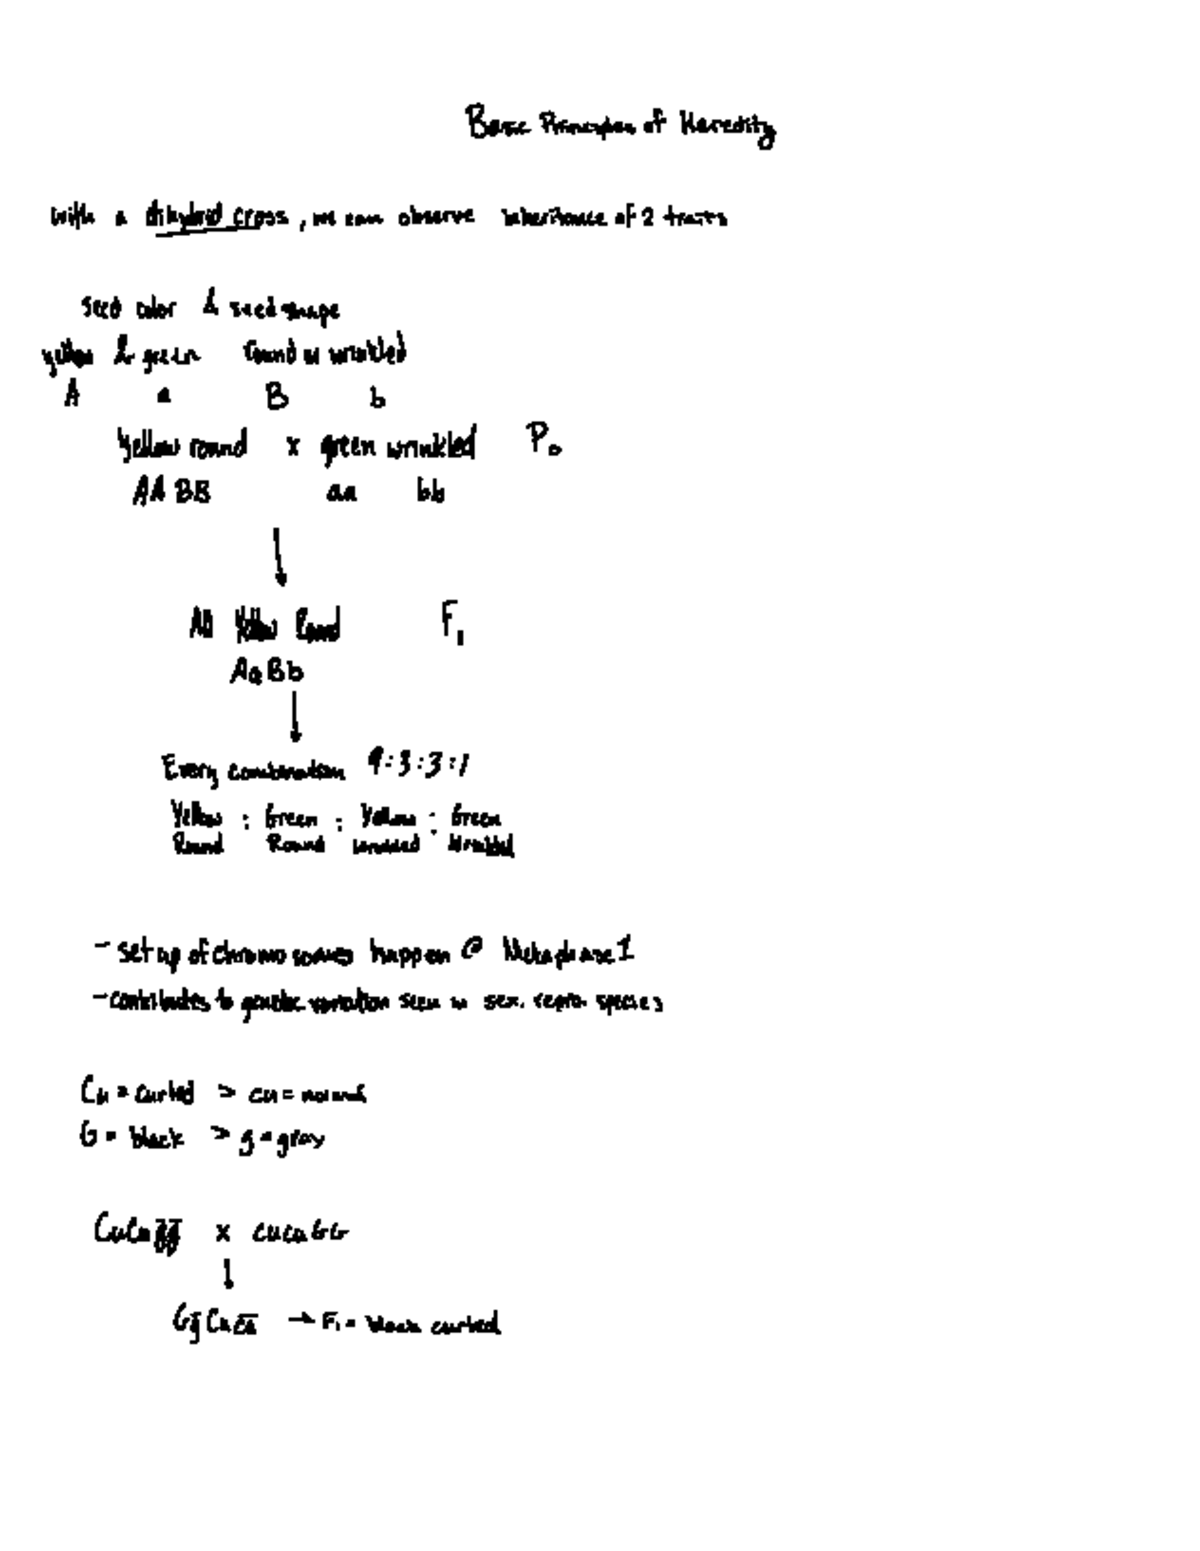 Basic Principles of Heredity
with a dihybrid cross, we can observe inheritance of 2 traits
seed color & seed shape
yellow & green round or wrinkled
A a B b
Yellow round x green wrinkled P₀
AA BB aa bb
↓
All Yellow Round F₁
AaBb
↓
Every combination 9:3:3:1
Yellow : Green : Yellow : Green
Round Round wrinkled Wrinkled
- set up of chromosomes happen @ Metaphase 1
- contributes to genetic variation seen in sex. repro. species
Cu = curled > cu = normal
G = black > g = gray
CuCu gg x cucu GG
↓
Gg Cu cu → F₁ = black curled